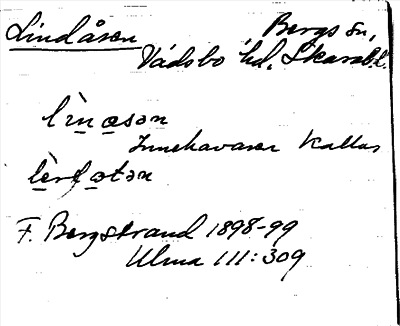 Lindåsen Bergs sn,
Vadsbo hd, Skarab.l.
lìnasən
Innehavaren kallas
F. Bergstrand 1898-99
Ulma 111:309